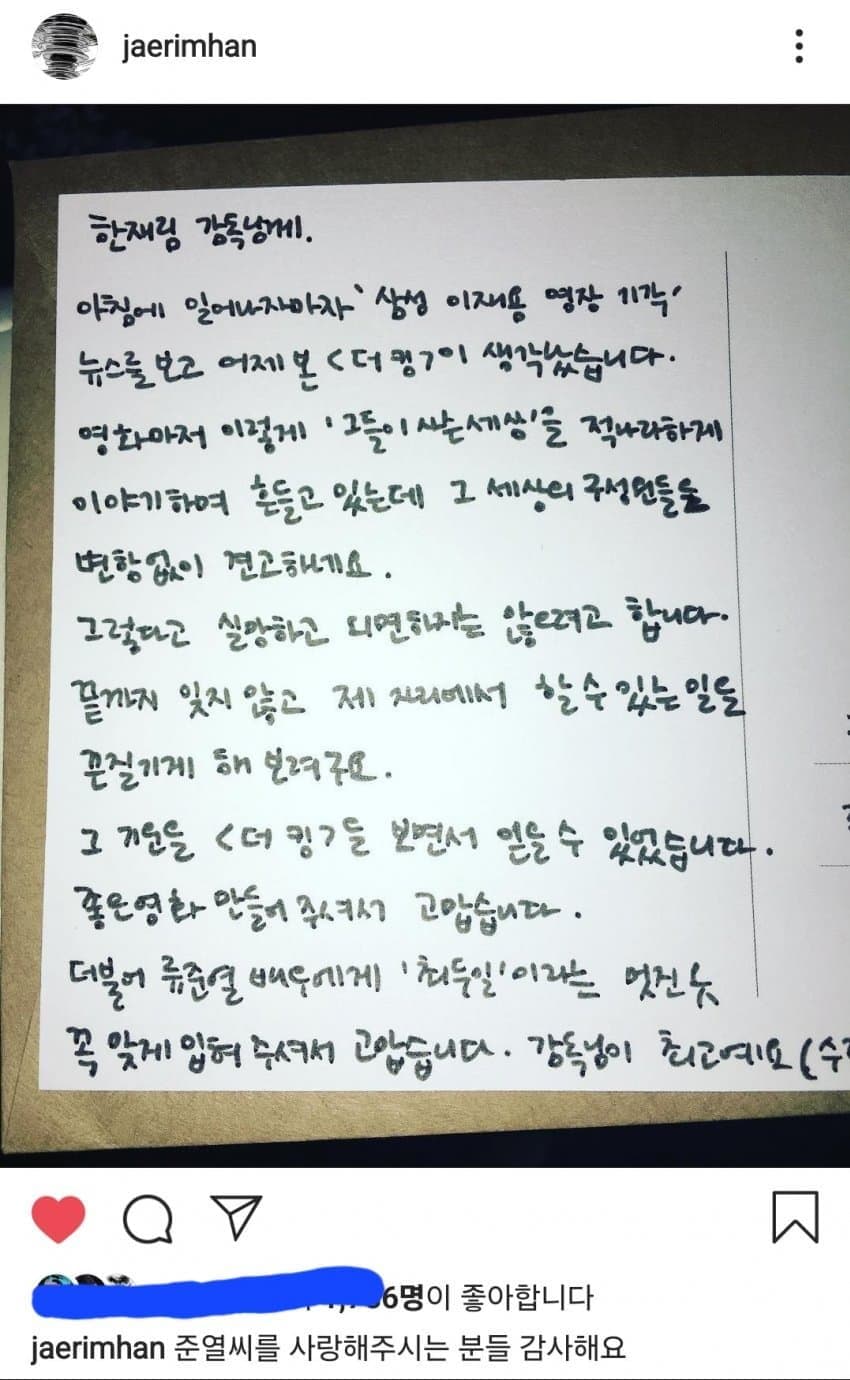 jaerimhan
한재림 감독님께.
아침에 일어나자마자 '삼성 이재용 영장 기각'
뉴스를 보고 어제 본 <더 킹>이 생각났습니다.
영화마저 이렇게 '그들이 사는 세상'을 적나라하게
이야기하며 흔들고 있는데 그 세상의 구성원들은
변함없이 견고하네요.
그렇다고 실망하고 외면하지는 않으려고 합니다.
끝까지 잊지 않고 제 자리에서 할 수 있는 일들
끈질기게 해 보려구요.
그 기운을 <더 킹>을 보면서 얻을 수 있었습니다.
좋은 영화 만들어 주셔서 고맙습니다.
더불어 류준열 배우에게 '최두일'이라는 멋진 옷
꼭 맞게 입혀 주셔서 고맙습니다. 감독님이 최고예요 (
6명이 좋아합니다
jaerimhan 준열씨를 사랑해주시는 분들 감사해요